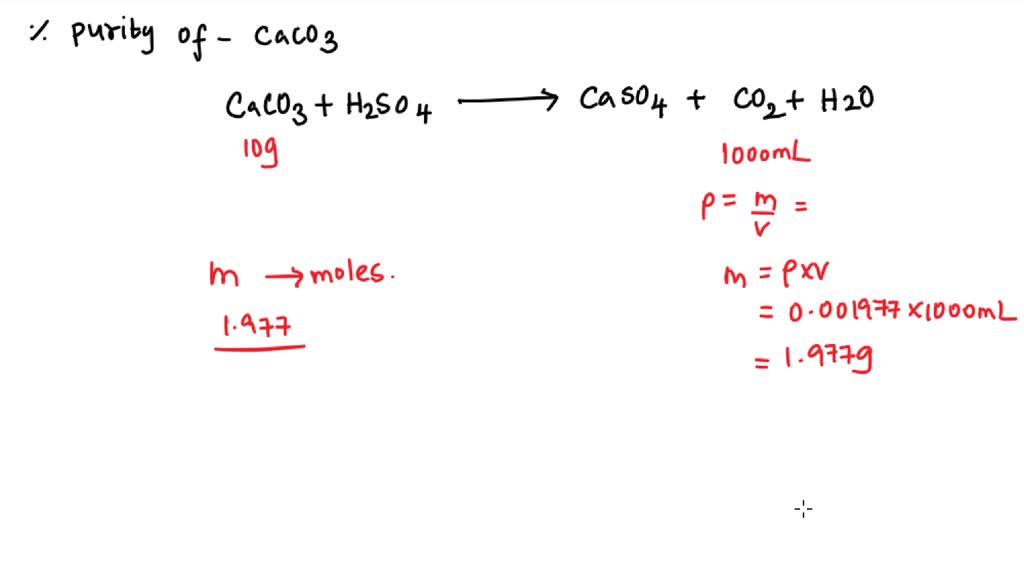 ٪ purity of - CaCO3
CaCO3 + H2SO4 ⟶ CaSO4 + CO2 + H2O
10g 1000mL
ρ = m/v =
m → moles. m = ρxv
1.977 = 0.001977 x 1000mL
= 1.977g